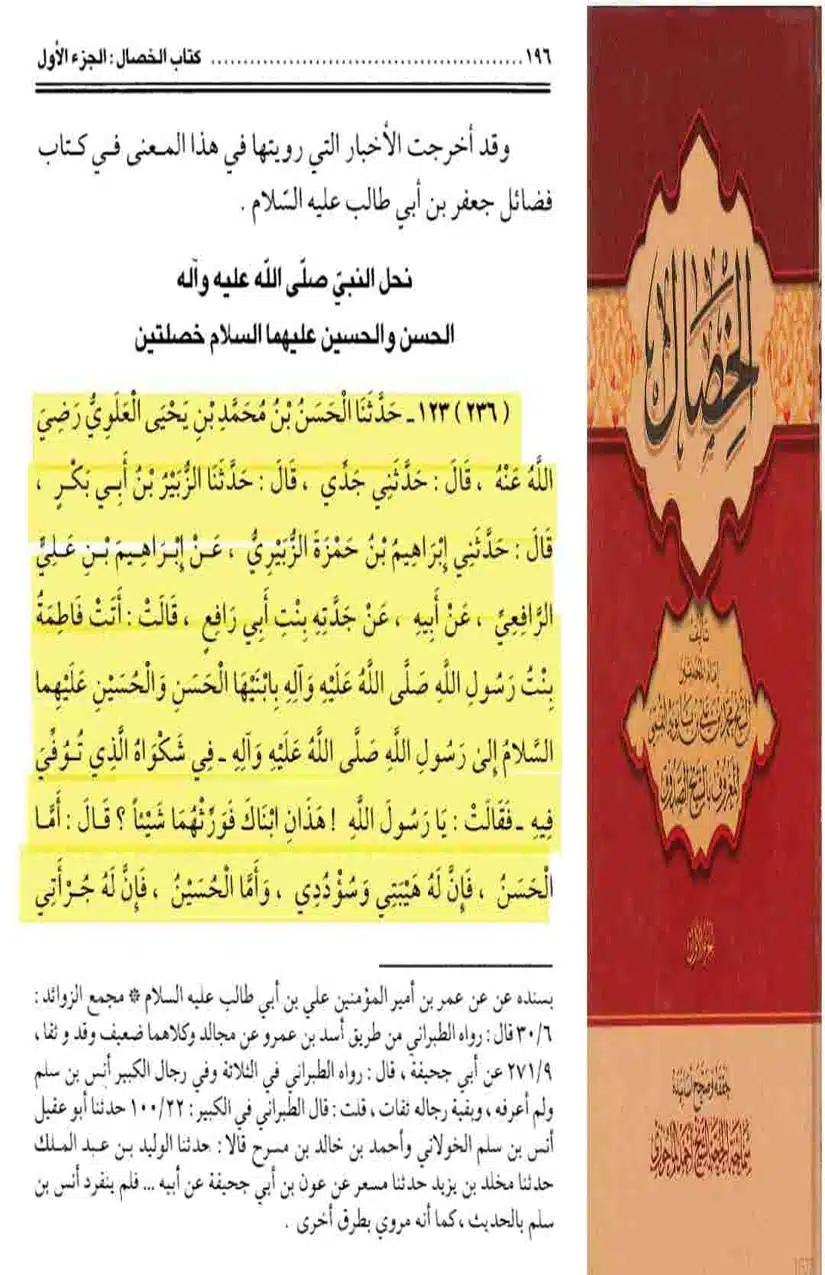 ١٩٦ ................................................ كتاب الخصال : الجزء الأول
وقد أخرجت الأخبار التي رويتها في هذا المعنى في كتاب
فضائل جعفر بن أبي طالب عليه السّلام .
نحل النبيّ صلّى اللّه عليه وآله
الحسن والحسين عليهما السلام خصلتين
( ٢٣٦ ) ١٢٣ ـ حَدَّثَنَا الْحَسَنُ بْنُ مُحَمَّدِ بْنِ يَحْيَى الْعَلَوِيُّ رَضِيَ
اللَّهُ عَنْهُ ، قَالَ : حَدَّثَنِي جَدِّي ، قَالَ : حَدَّثَنَا الزُّبَيْرُ بْنُ أَبِي بَكْرٍ ،
قَالَ : حَدَّثَنِي إِبْرَاهِيمُ بْنُ حَمْزَةَ الزُّبَيْرِيُّ ، عَنْ إِبْرَاهِيمَ بْنِ عَلِيٍّ
الرَّافِعِيِّ ، عَنْ أَبِيهِ ، عَنْ جَدَّتِهِ بِنْتِ أَبِي رَافِعٍ ، قَالَتْ : أَتَتْ فَاطِمَةُ
بِنْتُ رَسُولِ اللَّهِ صَلَّى اللَّهُ عَلَيْهِ وَآلِهِ بِابْنَيْهَا الْحَسَنِ وَالْحُسَيْنِ عَلَيْهِما
السَّلامُ إِلىٰ رَسُولِ اللَّهِ صَلَّى اللَّهُ عَلَيْهِ وَآلِهِ ـ فِي شَكْوَاهُ الَّذِي تُوُفِّيَ
فِيهِ ـ فَقَالَتْ : يَا رَسُولَ اللَّهِ ! هَذَانِ ابْنَاكَ فَوَرِّثْهُمَا شَيْئاً ؟ قَالَ : أَمَّا
الْحَسَنُ ، فَإِنَّ لَهُ هَيْبَتِي وَسُؤْدُدِي ، وَأَمَّا الْحُسَيْنُ ، فَإِنَّ لَهُ جُرْأَتِي
بسنده عن عن عمر بن أمير المؤمنين علي بن أبي طالب عليه السلام * مجمع الزوائد :
٣٠/٦ قال : رواه الطبراني من طريق أسد بن عمرو عن مجالد وكلاهما ضعيف وقد و ثقا ،
٢٧١/٩ عن أبي جحيفة ، قال : رواه الطبراني في الثلاثة وفي رجال الكبير أنس بن سلم
ولم أعرفه ، وبقية رجاله ثقات ، قلت : قال الطبراني في الكبير : ١٠٠/٢٢ حدثنا أبو عقيل
أنس بن سلم الخولاني وأحمد بن خالد بن مسرح قالا : حدثنا الوليد بن عبد الملك
حدثنا مخلد بن يزيد حدثنا مسعر عن عون بن أبي جحيفة عن أبيه ... فلم ينفرد أنس بن
سلم بالحديث ، كما أنه مروي بطرق أخرى .
الخصال
تأليف
الشيخ محمد بن علي بن بابويه القمي
المعروف بالشيخ الصدوق
الجزء الأول